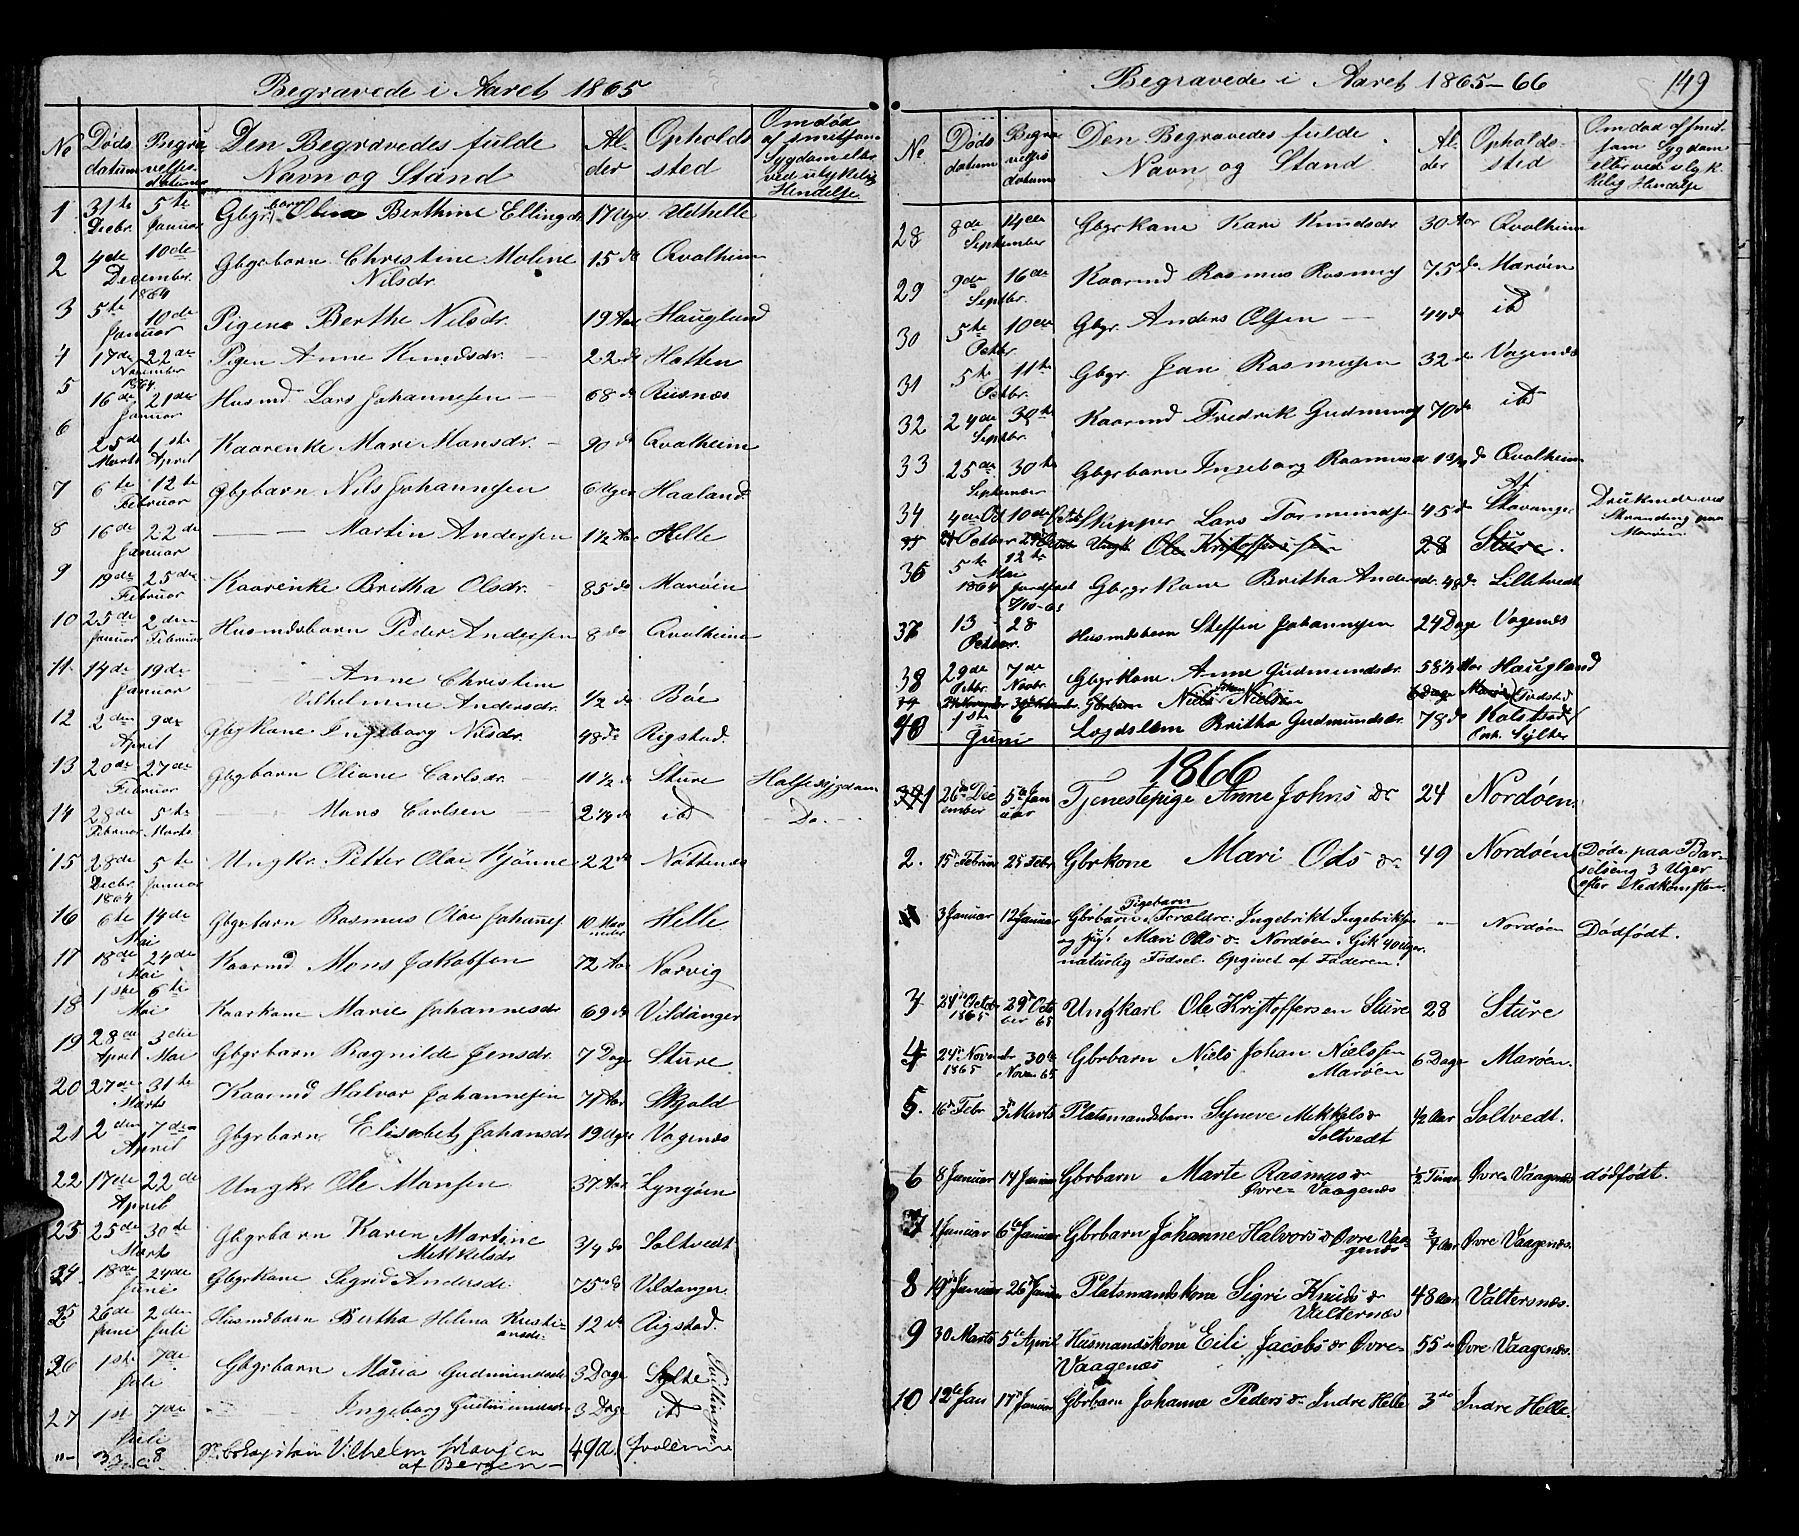 Begravede i Aaret 1865
No Døds datum Begravelses datum Den Begravedes fulde Navn og Stand Alder Opholds sted Om død af smitsom Sygdom eller ved ulykkelig Hendelse
1 31te Decbr. 5te Januar Gbgr barn Berthine Ellingdr. 17 Uger Uethelle
2 4de 10de December 1864 Gbgrbarn Christine Moline Nilsdr. 15 do Qvalheim
3 5te 10de Januar Pigen Berthe Nilsdr. 19 Aar Haugland
4 17de 22de November 1864 Pigen Anne Knudsdr. 22 do Hatten
5 16de 21de Januar Husmd Lars Johannesen 68 do Risnæs
6 25de Marts 1ste April Kaarenke Mari Monsdr. 90 do Qvalheim
7 6te 12te Februar Gbgbarn Nils Johannesen 6 Uger Haaland
8 16de 22de Januar — Martin Andersen 1½ Aar Helle
9 19de 25de Februar Kaarenke Britha Olsdr. 85 do Marøen
10 25de Januar 2den Februar Husmdsbarn Peder Andersen 8 do Qvalheim
11 14de 19de Januar — Anne Christine
Vilhelmine Andersdr. ½ do Bøe
12 2den 9de April Gbgkone Ingeborg Nilsdr. 48 do Rigstad.
13 20de 27de Februar Gbgbarn Oliane Carlsdr. 11½ do Sture Halssygdom
14 28de Februar 5te Marts — Mons Carlsen 2¼ do id — Do. —
15 28de Decbr. 1864 5te Januar Ungkr. Petter Olai 22 do Nøttenes
16 6te 14de Mai Gbgrbarn Rasmus Olai Johannes 10 Maaneder Helle
17 18de 24de Mai Kaarmd Mons Jakobsen 72 Aar Norvig
18 1ste 6te Mai Kaarkone Marie Johannesdr 69 do Vildanger
19 28de April 3die Mai Gbgrbarn Ragnilde Jensdr. 7 Dage Sture.
20 27de 31te Marts Kaarmd Halvor Johannesen 71 Aar Skjold
21 2den 7de April Gbgrbarn Elisabet Johansdr 19 Uger Vagenæs
22 17de 22de April Ungkr Ole Monsen 37 Aar Lyngøen
23 25de 30de Marts Gbgrbarn Karen Martine
Mikkelsdr ¾ do Soltvedt
24 18de 24de Juni Gbgrkone Sigrid Andersdr. 75 do Vildanger.
25 26de Juni 2den Juli Husmdbarn Bertha Helena Kristiansdr. 12 do Rigstad.
26 1ste 7de Juli Gbgrbarn Maria Gudmundsdr 3 Dage Sylte Tvillinger
27 1st 7de Juli — Ingeborg Gudmundsdr 3 Dage id
"- 3 Juli 8 Vilhelm
af Bergen — 49
Begravede i Aaret 1865-66 149
No Døds datum Begravelses datum Den Begravedes fulde Navn og Stand Alder Opholds sted Om død af smitsom Sygdom eller ved ulykkelig Hendelse
28 8de 14de September Gbgrkone Kari Knudsdr 30 Aar Qvalheim
29 9de 16de Septbr. Kaarmd Rasmus Rasmus 75 do Marøen
30 5te 10de Octbr. Gbgr. Anders Olsen 44 do id
31 5te 11te Octbr. Gbgr. Jan Rasmusen 32 do Vagenæs
32 24de 30te Septbr. Kaarmd Fredrik Gudmunds 70 do id
33 25de 30te September Gbgrbarn Ingeborg Rasmusdr do Qvalheim
34 4de Oct 10de Octb Skipper Lars Tormundsen 45 do Af Stavanger Druknede ved Stranding paa Marøen
35 24 Octber 29 Octob Ungk Ole Kristoffersen 28 Sture.
36 5te 12te Mai 1864 Jordfæst 7/10-65 Gbgrkone Britha Andersdr. 48 do Lilletvedt
37 13 28 Octbr. Husmdsbarn Steffen Johannesen 24 Dage Vagenæs
38 29de Octbr. 7de Novbr. Gbgrkone Anne Gudmundsdr. 58½ Aar Haugland
39 Gbrbarn Niels Johan Nielsen 6 Dage Marøn
40 1ste 6 Juni Lægdslem Britha Gudmundsdr. 78 do Kolstad
1866
1 26de December 5te Januar Tjenestepige Anne Johns dr 24 Nordøen.
2. 15de Februar 25 Febr. Gbrkone Mari Ods dr 49 Nordøen Døde paa Barselseng 3 Uger efter Nedkomsten.
3 Januar 12 Januar Gbrbarn Pigebarn Forældre: Ingebrikt Ingebriktsen — Nordøen Dødfødt.
og pige Mari Ods dr Nordøen. Gik 40 Uger.
naturlig Fødsel. Opgivet af Faderen.
3 24de Octob 1865 29de October 65 Ungkarl Ole Kristoffersen Sture 28 Sture
4 24de Novembr 1865 30te Novem 65 Gbrbarn Niels Johan Nielssen
Marøen 6 Dage Marøen.
5. 16de Febr 3de Marts Platsmandsbarn Syneve Mikkels dr
Soltvedt ½ Aar Soltvedt.
6 8 Januar 14 Januar Gbrbarn Marte Rasmus dr
Øvre Vaagenæs ½ Time Øvre Vaagenæs dødfødt.
7 1 Januar 6te Januar Gbrbarn Johanne Halvors dr Øvre Vaagenæs ¾ Aar Øvre Vaagenæs.
8 19de Januar 26de Januar Platsmandskone Sigri Knuds dr
Valternæs 48 Aar Valtersnæs.
9 30 Marts 5te April Husmandskone Eili Jacobs dr Øvre-
Vaagenæs 55 do Øvre Vaagenæs.
10 12te Jan 17de Januar Gbrbarn Johanne Peders dr Indre Helle 3 do Indre Helle.